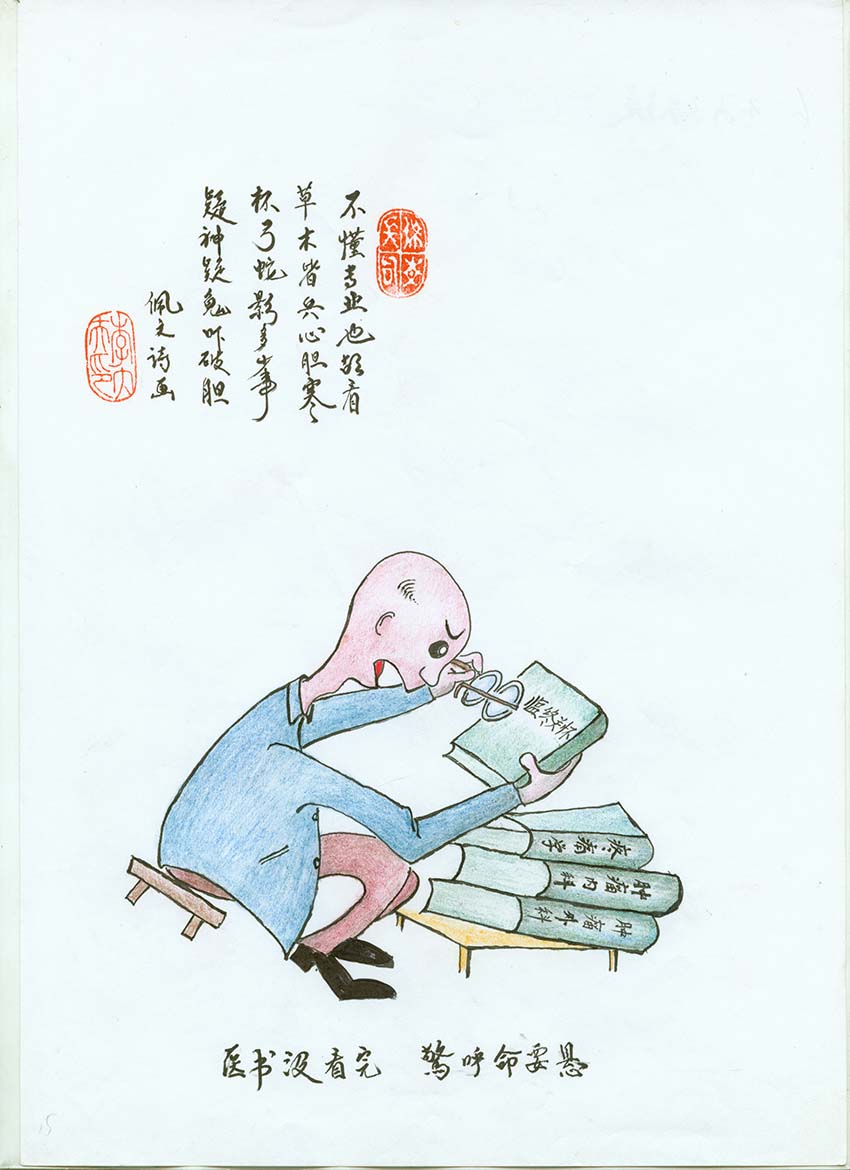 不懂专业也敢看
草木皆兵心胆寒
杯弓蛇影多少事
疑神疑鬼吓破胆
佩文诗画
临终关怀
疼痛学
肿瘤内科
肿瘤外科
医书没看完 驚呼命要悬